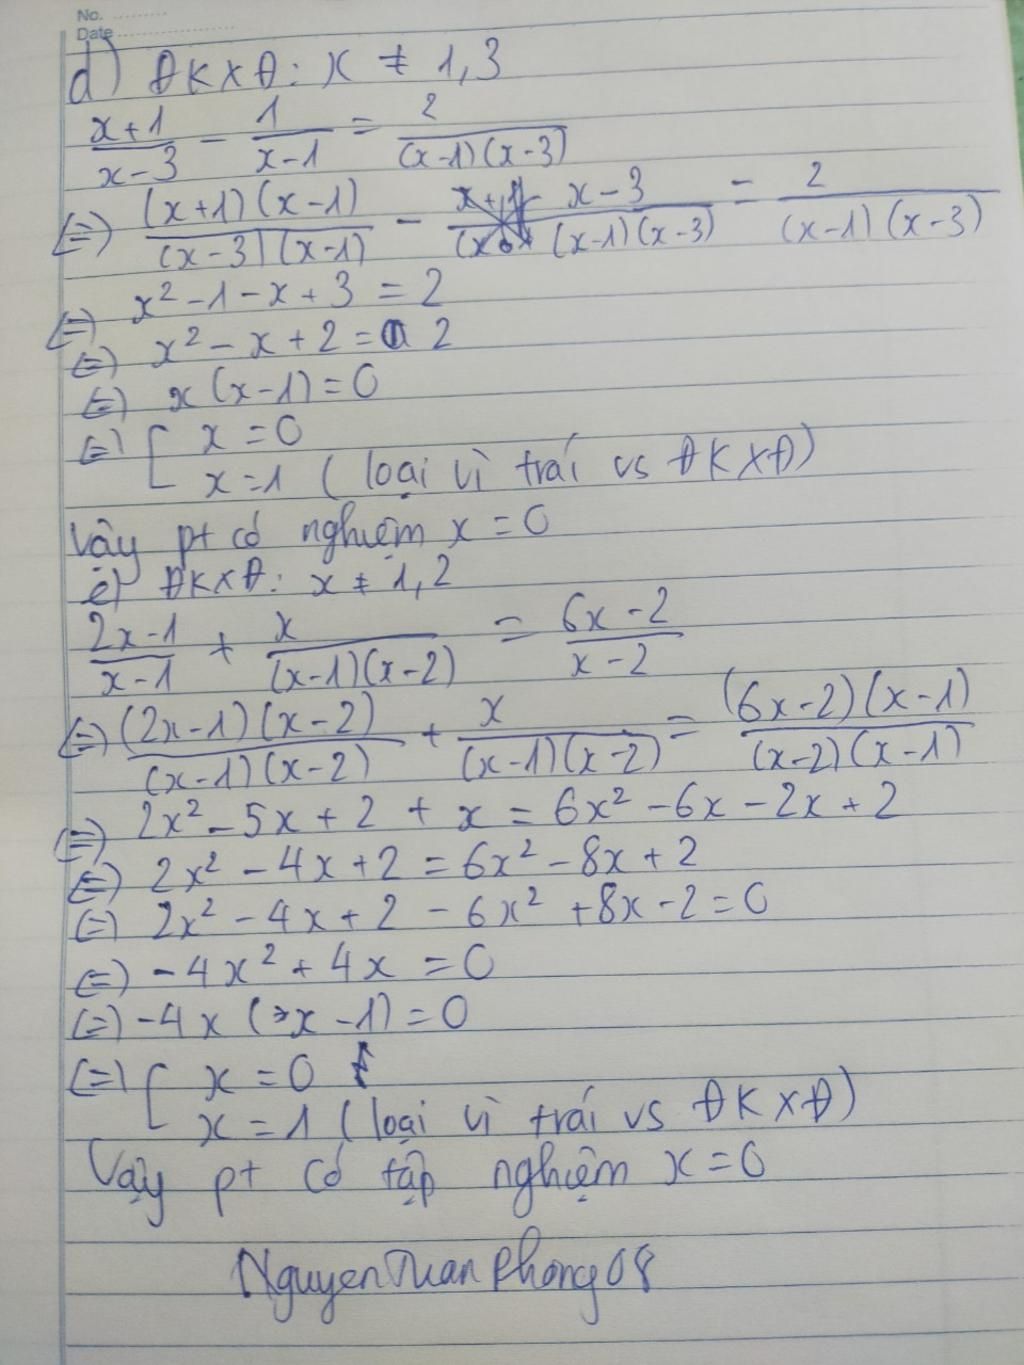 No.
Date
d) ĐKXĐ: x ≠ 1,3
(x+1)/(x-3) - 1/(x-1) = 2/((x-1)(x-3))
(=) ((x+1)(x-1))/((x-3)(x-1)) - (x-3)/((x-1)(x-3)) = 2/((x-1)(x-3))
(=) x² - 1 - x + 3 = 2
(=) x² - x + 2 = 2
(=) x(x-1) = 0
(=) [ x = 0
x = 1 (loại vì trái vs ĐKXĐ)
Vậy pt có nghiệm x = 0
e) ĐKXĐ: x ≠ 1,2
(2x-1)/(x-1) + x/((x-1)(x-2)) = (6x-2)/(x-2)
(=) ((2x-1)(x-2))/((x-1)(x-2)) + x/((x-1)(x-2)) = ((6x-2)(x-1))/((x-2)(x-1))
(=) 2x² - 5x + 2 + x = 6x² - 6x - 2x + 2
(=) 2x² - 4x + 2 = 6x² - 8x + 2
(=) 2x² - 4x + 2 - 6x² + 8x - 2 = 0
(=) -4x² + 4x = 0
(=) -4x (x - 1) = 0
(=) [ x = 0
x = 1 (loại vì trái vs ĐKXĐ)
Vậy pt có tập nghiệm x = 0
NguyenTuanPhong08